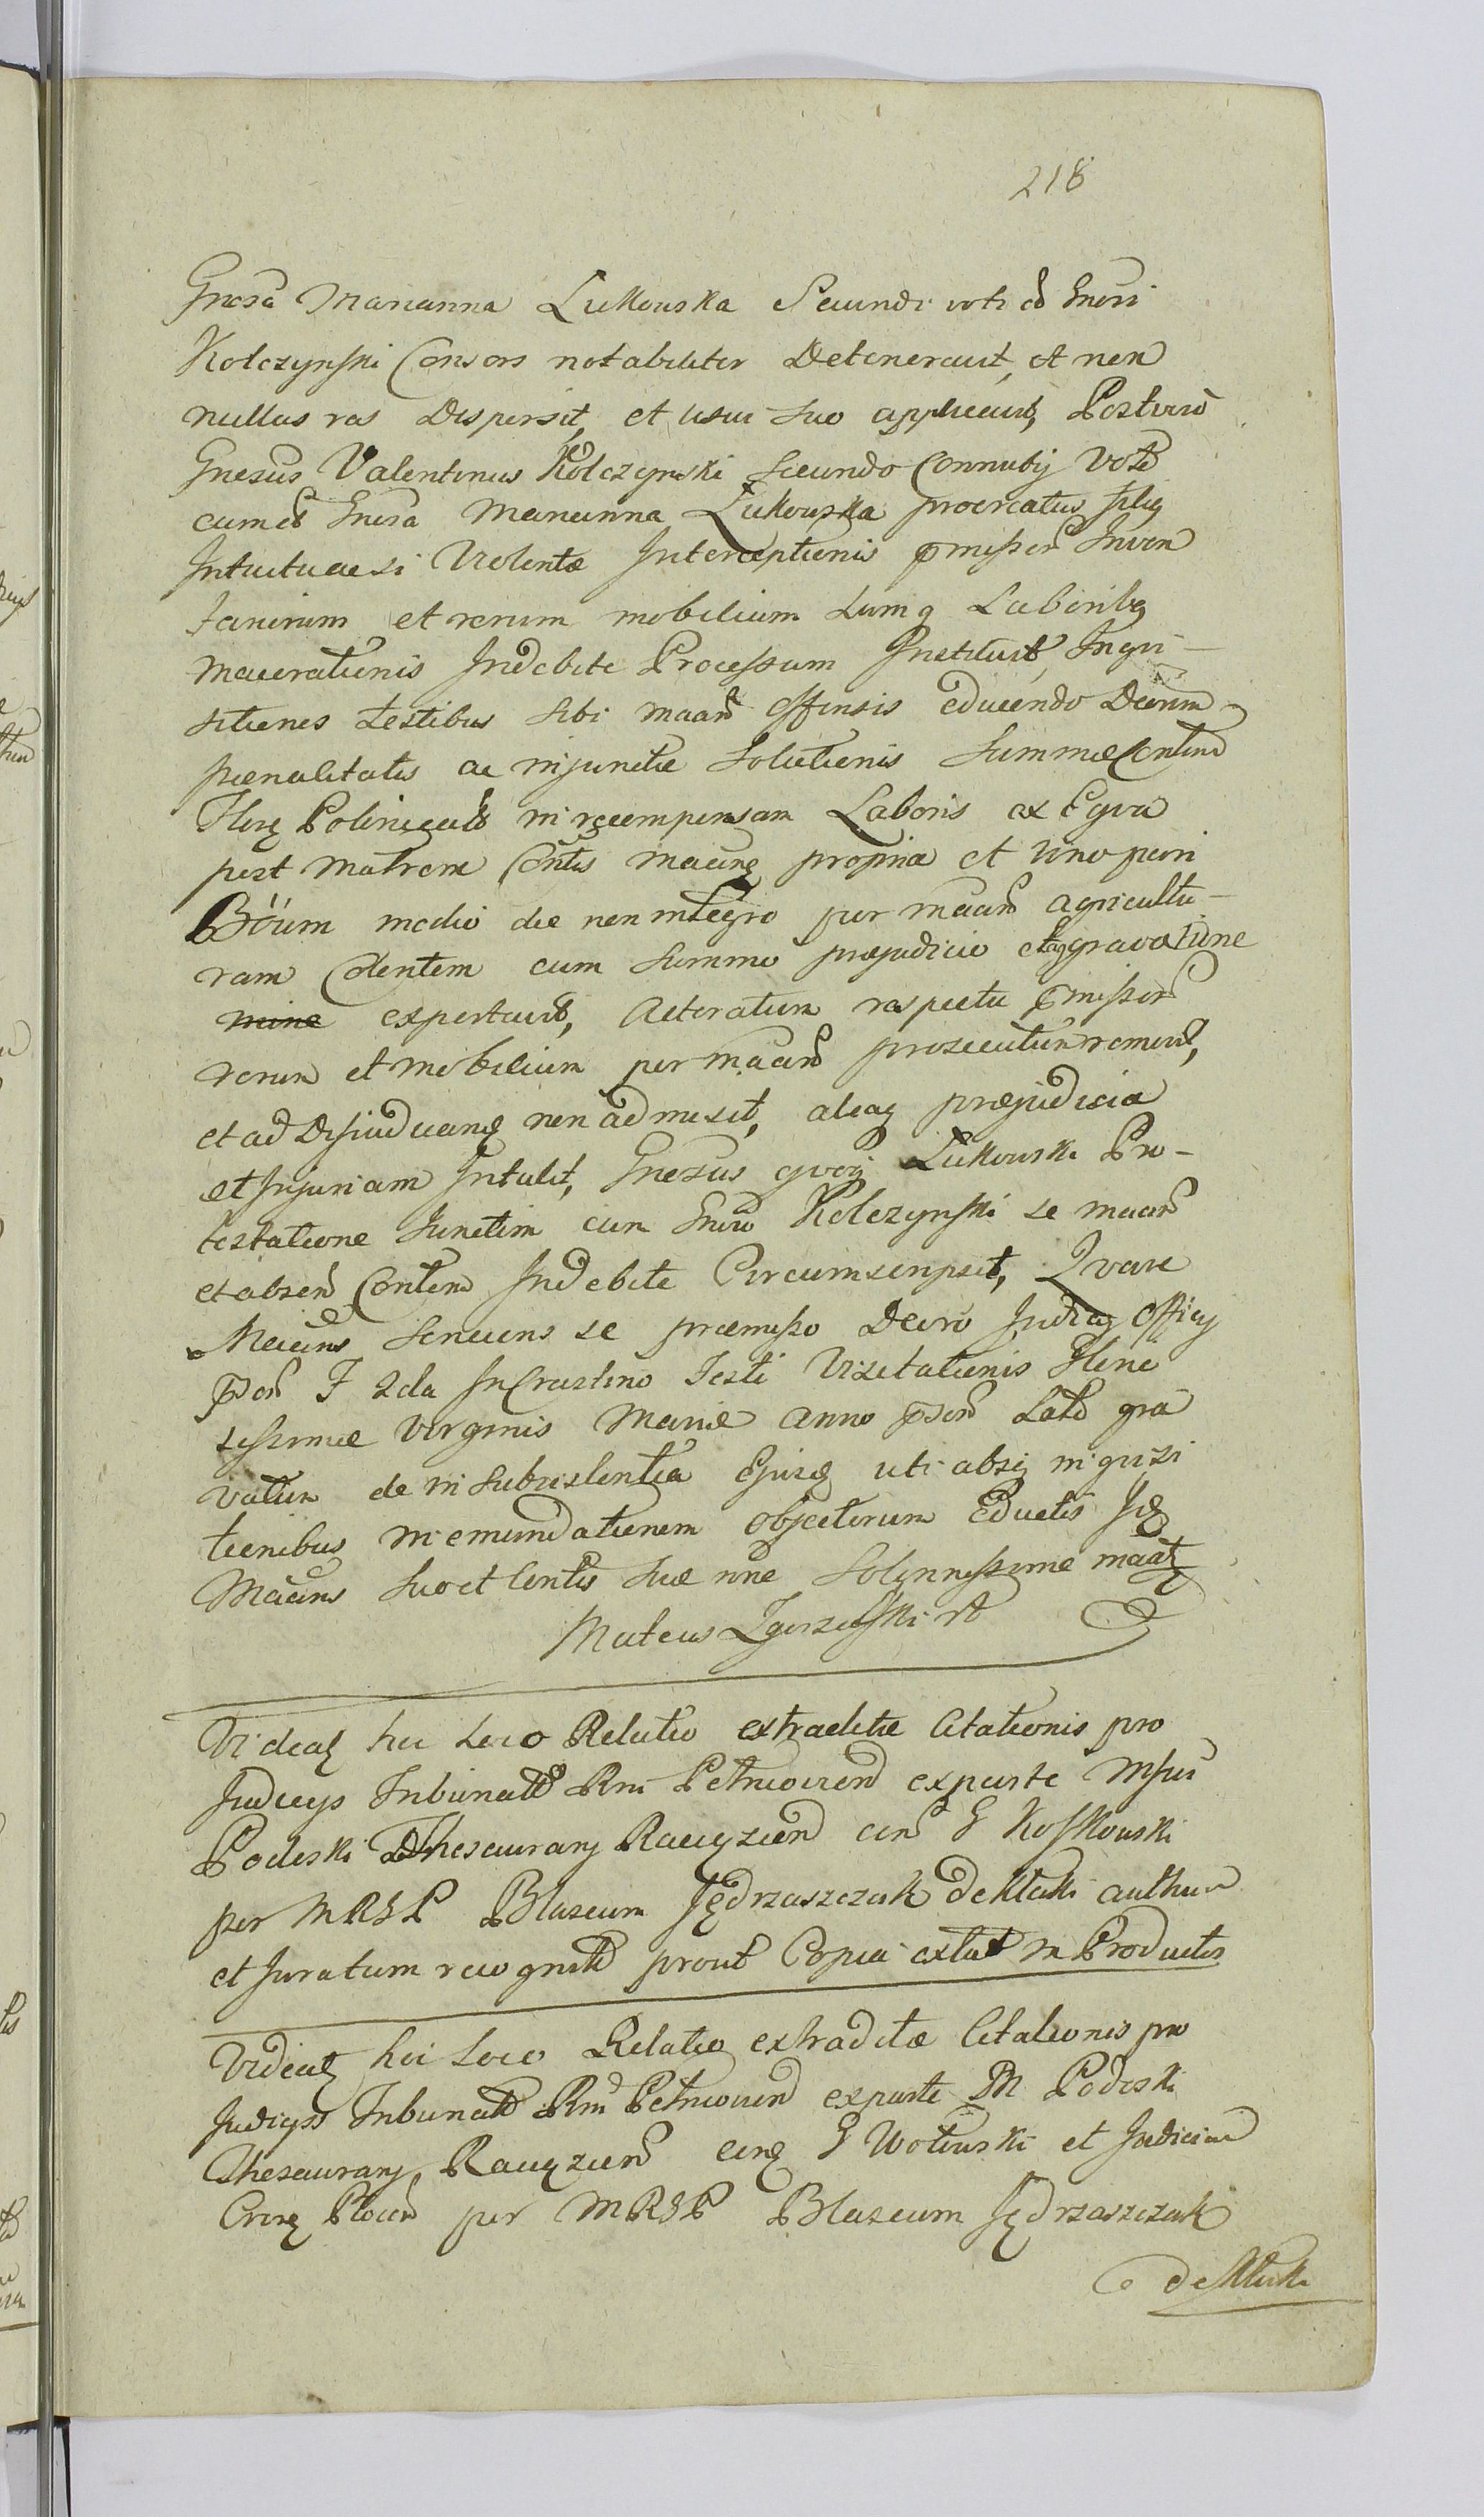 218
Gnosa Marianna Lukowska Secundi voti cō Gnosi
Kolczynski Consors notabiliter Detineravit, et non
nullas res Dispersit, et usui suo applicavit, Post vero
Gnosus Valentinus Kolczynski secundo Connubij Voto
cum eō Gnosa Marianna Lukowska procreatus filiq
Intuitu acsi Violentæ Interceptionis pmissor Inven
tariorum et rerum mobilium sumq Laboribq
macerationis Indebite Processum Instituit, Inqui-
sitiones testibus sibi maan offensis educendo Decrum
pœnalitatis ac injunctæ solutionis summæ Centum
Flor Polonical in recompensam Laboris ex Equa
post Matrem Contis macinq propria et uno pari
Böum medio die non integro per maan agricultu-
ram Colentem cum summo præjudicio et aggravatione
mine exportavit, Actoratum respectu pmissor
rerum et mobilium per maan prosecutum removit,
et ad Dijudicanq non admisit, aliaq præjudicia
et Injuriam Intulit, Gnosus quoq Lukowski Pro-
testatione Junctim cum Gnoso Kolczynski se maan
et absen Contem Indebite Circumscripsit, Quare
Macins senciens se præmisso Decro Judicij Officij
pson F 2da In Crastino Festi Visitationis Glorio
sissimæ Virginis Mariæ anno pson Lato gra
vatum de insubsistentia Ejusq uti absq inquisi
tionibus in emundationem Objectorum Eductis Idq
Macins suo et Contis suæ nne Solennissime maatq
Mateus Zgorzelski rt
Videatq hic Loco Relatio extraditæ Citationis pro
Judicijs Tribunalō Rni Petricovien ex parte Msui
Podoski Thesaurarij Raciązien con G Koskowski
per MRGP Blasium Jędrzaszczak de Kluki authum
et Juratum recognita prout Copia extat in Productis
Videatq hic Loco Relatio extraditæ Citationis pro
Judicijs Tribunalō Rni Petricovien ex parte M Podoski
Thesaurarij Raciązien conq G Wolowski et Judicium
Crinq Plocen per MRGP Blasium Jędrzaszczak
de Kluki